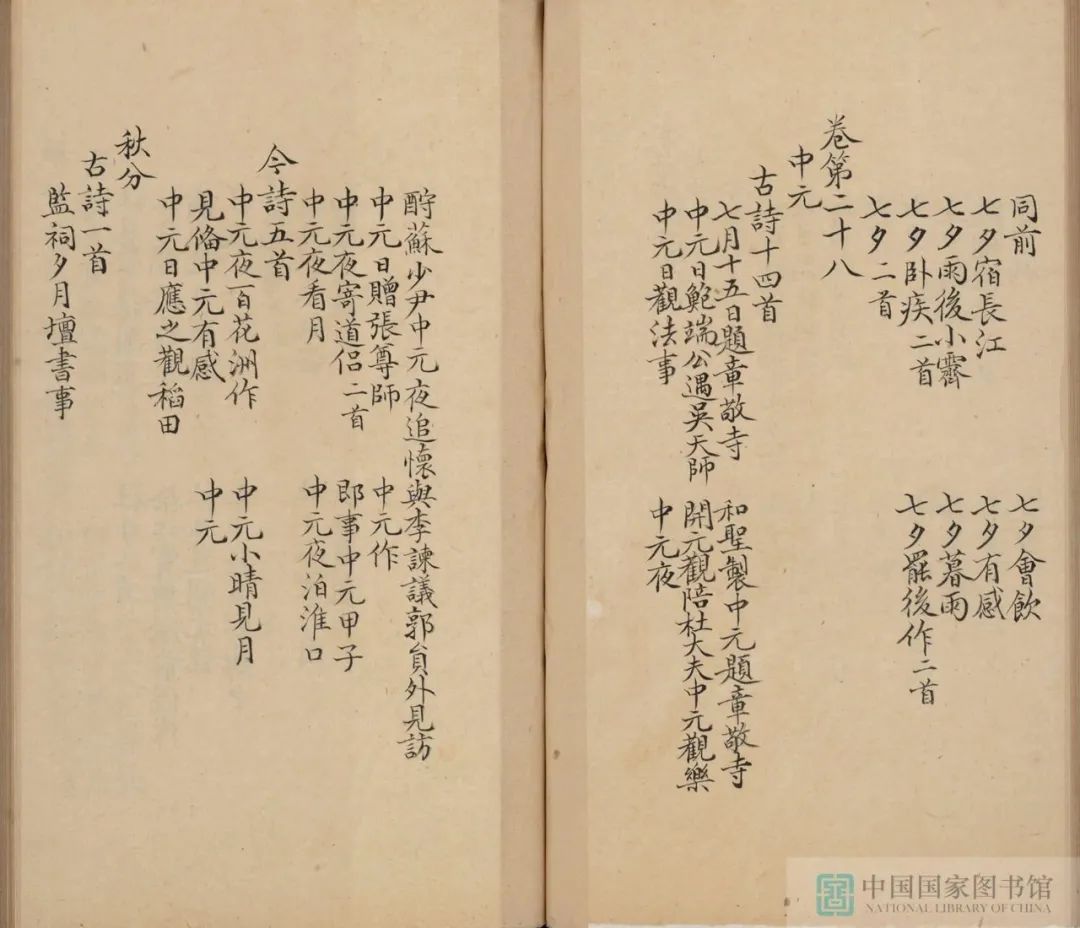 同前 七夕會飲
七夕宿長江 七夕有感
七夕雨後小霽 七夕暮雨
七夕卧疾二首 七夕罷後作二首
七夕二首
卷第二十八
中元
古詩十四首
七月十五日題章敬寺 和聖製中元題章敬寺
中元日鮑端公遇吳天師 開元觀陪杜大夫中元觀樂
中元日觀法事 中元夜
酧蘇少尹中元夜追懷與李諫議郭貟外見訪
中元日贈張尊師 中元作
中元夜寄道侣二首 即事中元甲子
中元夜看月 中元夜泊淮口
今詩五首
中元夜百花洲作 中元小晴見月
見脩中元有感 中元
中元日應之觀稻田
秋分
古詩一首
監祠夕月壇書事
中国国家图书馆
NATIONAL LIBRARY OF CHINA